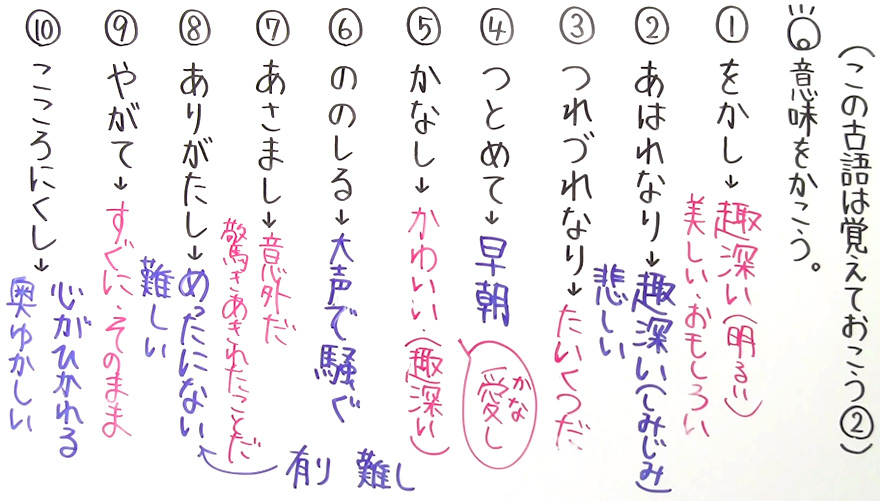 (この古語は覚えておこう②)
意味をかこう。
①をかし→趣深い(明るい)
美しい・おもしろい
②あはれなり→趣深い(しみじみ)
悲しい
③つれづれなり→たいくつだ
④つとめて→早朝
かな
愛し
⑤かなし→かわいい・(趣深い)
⑥ののしる→大声で騒ぐ
⑦あさまし→意外だ
驚きあきれたことだ
⑧ありがたし→めったにない
難しい
有り 難し
⑨やがて→すぐに・そのまま
⑩こころにくし→心がひかれる
奥ゆかしい